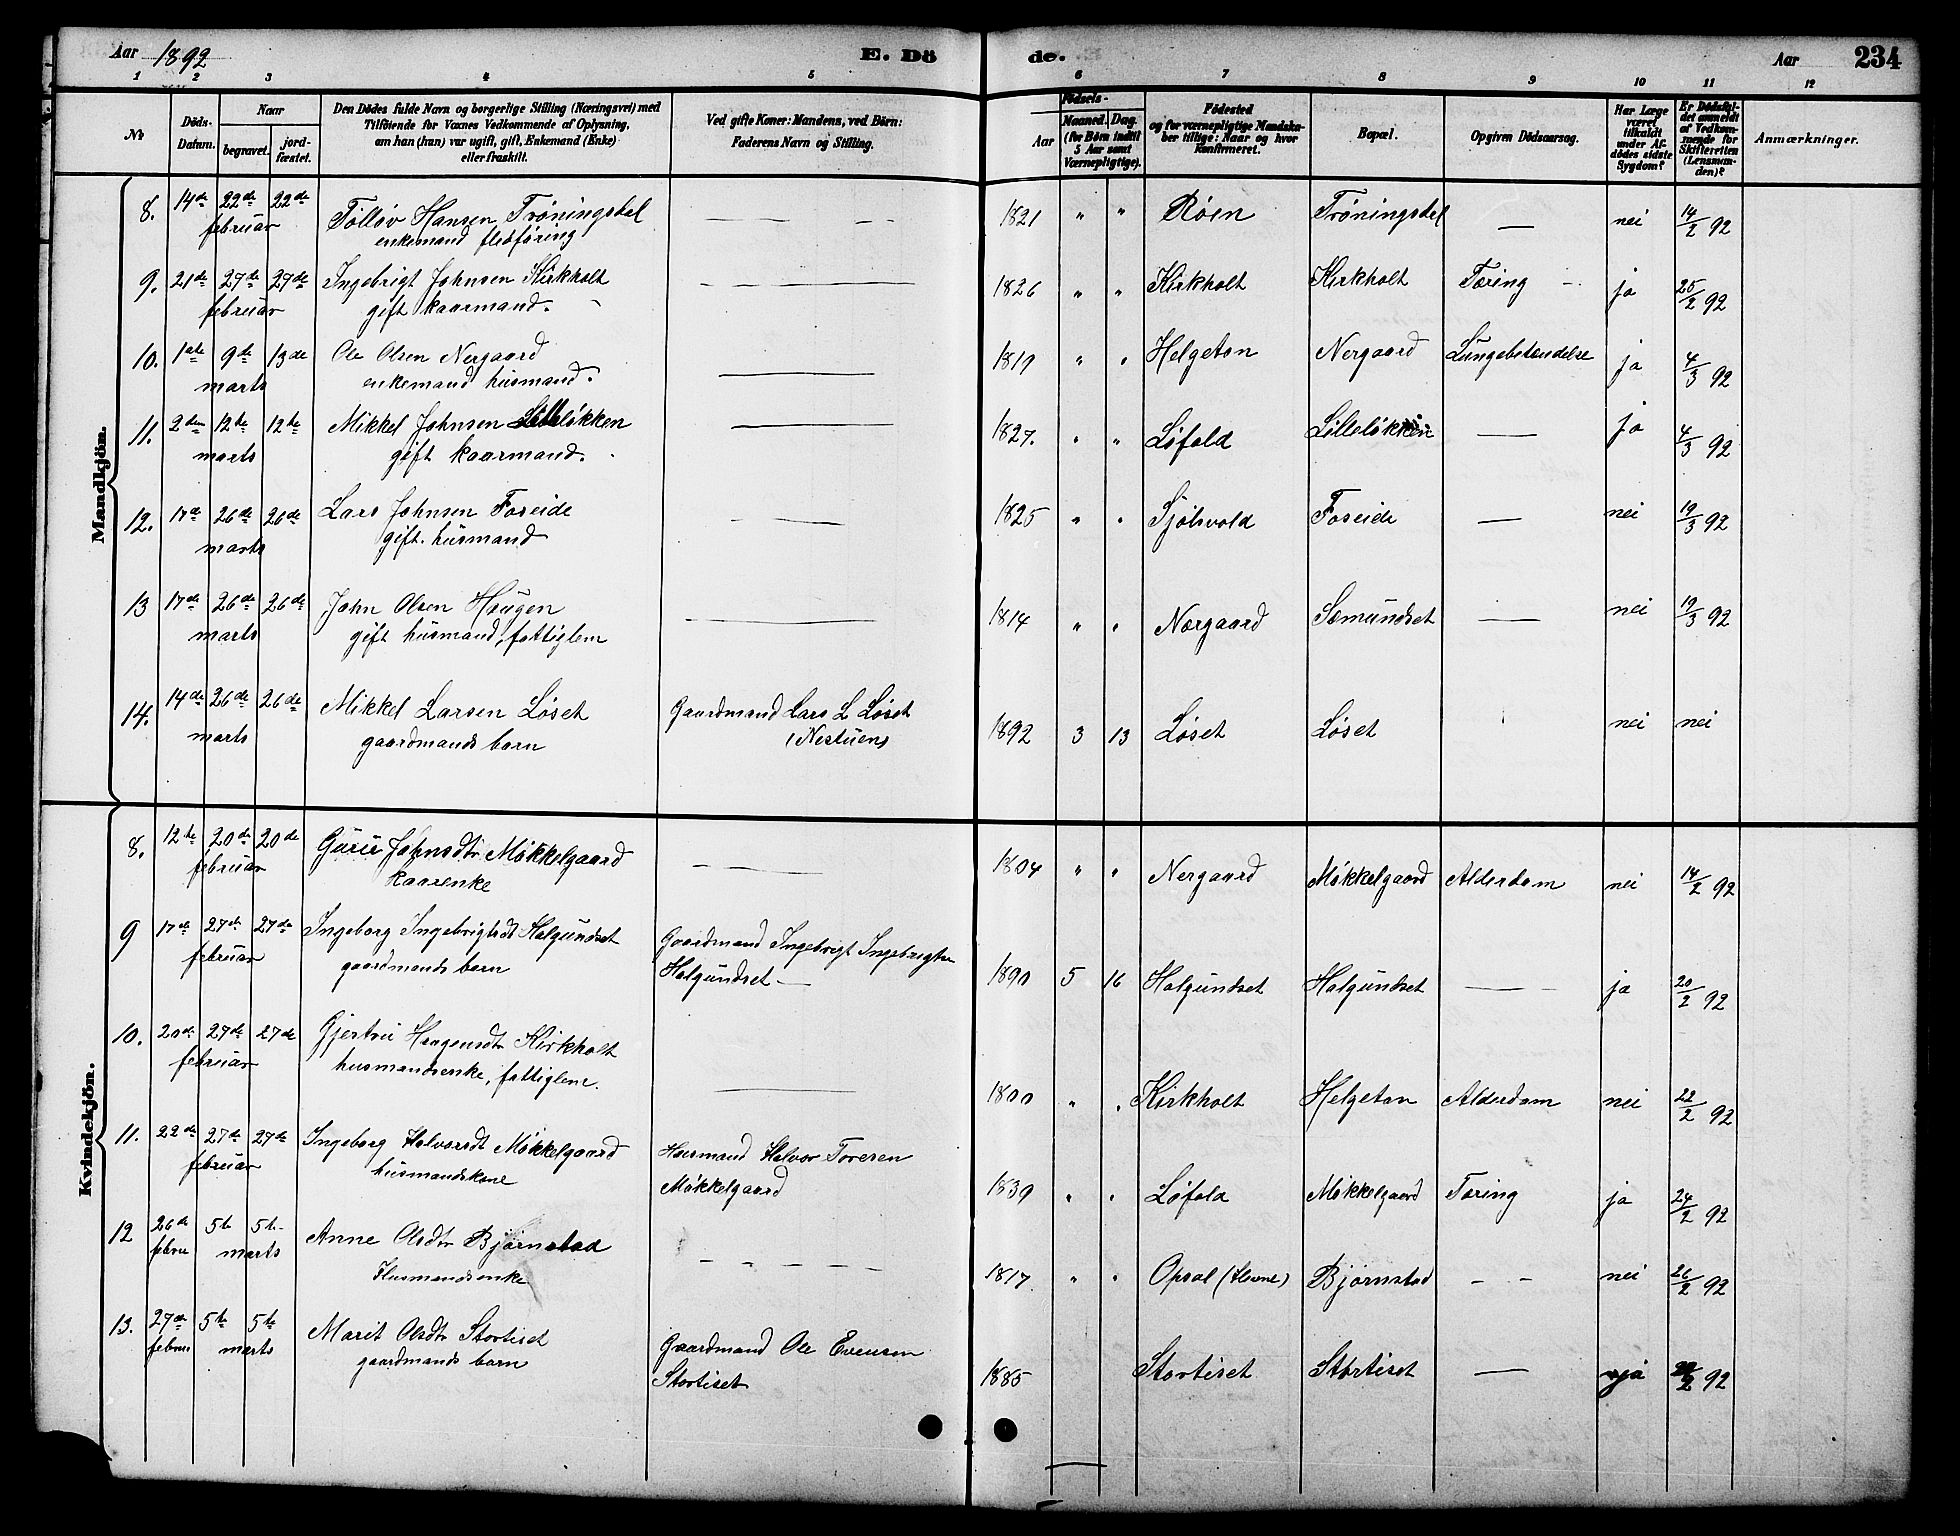 Aar 1892
E. Dö
de.
Aar
234
1 2 3 4 5 6 7 8 9 10 11 12
No
Döds-Datum.
Naar
begravet.
jordfæstet.
Den Dödes fulde Navn og borgerlige Stilling (Næringsvei) med
Tilföiende for Voxnes Vedkommende af Oplysning,
om han (hun) var ugift, gift, Enkemand (Enke)
eller fraskilt.
Ved gifte Koner: Mandens, ved Börn:
Faderens Navn og Stilling.
Födsels-
Aar
Maaned. Dag.
(for Börn indtil
5 Aar samt
Værnepligtige).
Födested
og for værnepligtige Mandskaber tillige: Naar og hvor
konfirmeret.
Bopæl.
Opgiven Dödsaarsag.
Har Læge
været
tilkaldt
under Afdödes sidste
Sygdom?
Er Dödsfaldet anmeldt
af Vedkommende for
Skifteretten
(Lensmanden)?
Anmærkninger.
Mandkjön.
8. 14de 22de 22de Tolløv Hansen Tröningsdal 1821 " " Röen Tröningsdal — nei 14/2 92
februar enkemand fledføring
9. 21de 27de 27de Ingebrigt Johnsen Kirkholt 1826 " " Kirkholt Kirkholt Tæring ja 25/2 92
februar gift kaarmand.
10. 1ste 9de 13de Ole Olsen Nergaard 1819 " " Helgeton Nergaard Lungebetændelse ja 4/3 92
marts enkemand husmand.
11. 2den 12te 12te Mikkel Johnsen Lilleløkken 1827. " " Løfald Lilleløkken — ja 4/3 92
marts gift kaarmand.
12. 17de 26de 26de Lars Johnsen Foseide 1825 " " Sjölsvold Foseide — nei 19/3 92
marts gift. husmand
13 17de 26de 26de John Olsen Haugen 1814 " " Nergaard Sæmundset — nei 19/3 92
marts gift husmand, fattiglem
14. 14de 26de 26de Mikkel Larsen Løset Gaardmand Lars L Løset 1892 3 13 Løset Løset nei nei
marts gaardmands barn (Nestuen)
Kvindekjön.
8. 12te 20de 20de Guru Johnsdtr Møkkelgaard 1804 " " Nergaard Møkkelgaard Alderdom nei 14/2 92
februar kaarenke
9 17de 27de 27de Ingeborg Ingebrigtsdt Halgundset Gaardmand Ingebrigt Ingebrigtsen 1890 5 16 Halgundset Halgundset — ja 20/2 92
februar gaardmands barn Halgundset
10. 20de 27de 27de Gjertru Haagensdtr Kirkholt 1800 " " Kirkholt Helgeton Alderdom nei 22/2 92
februar husmandsenke, fattiglem.
11. 22de 27de 27de Ingeborg Halvorsdt Møkkelgaard Husmand Halvor Toresen 1839 " " Løfald Møkkelgaard Tæring ja 24/2 92
februar husmandskone Møkkelgaard
12 26de 5te 5te Anne Olsdtr Bjørnstad 1817 " " Opsal (Hevne) Bjørnstad — nei 26/2 92
febru marts Husmandsenke
13. 27de 5te 5te Marit Olsdtr Stortiset Gaardmand Ole Evensen 1885 Stortiset Stortiset — ja /2 92
februa marts gaardmands barn Stortiset